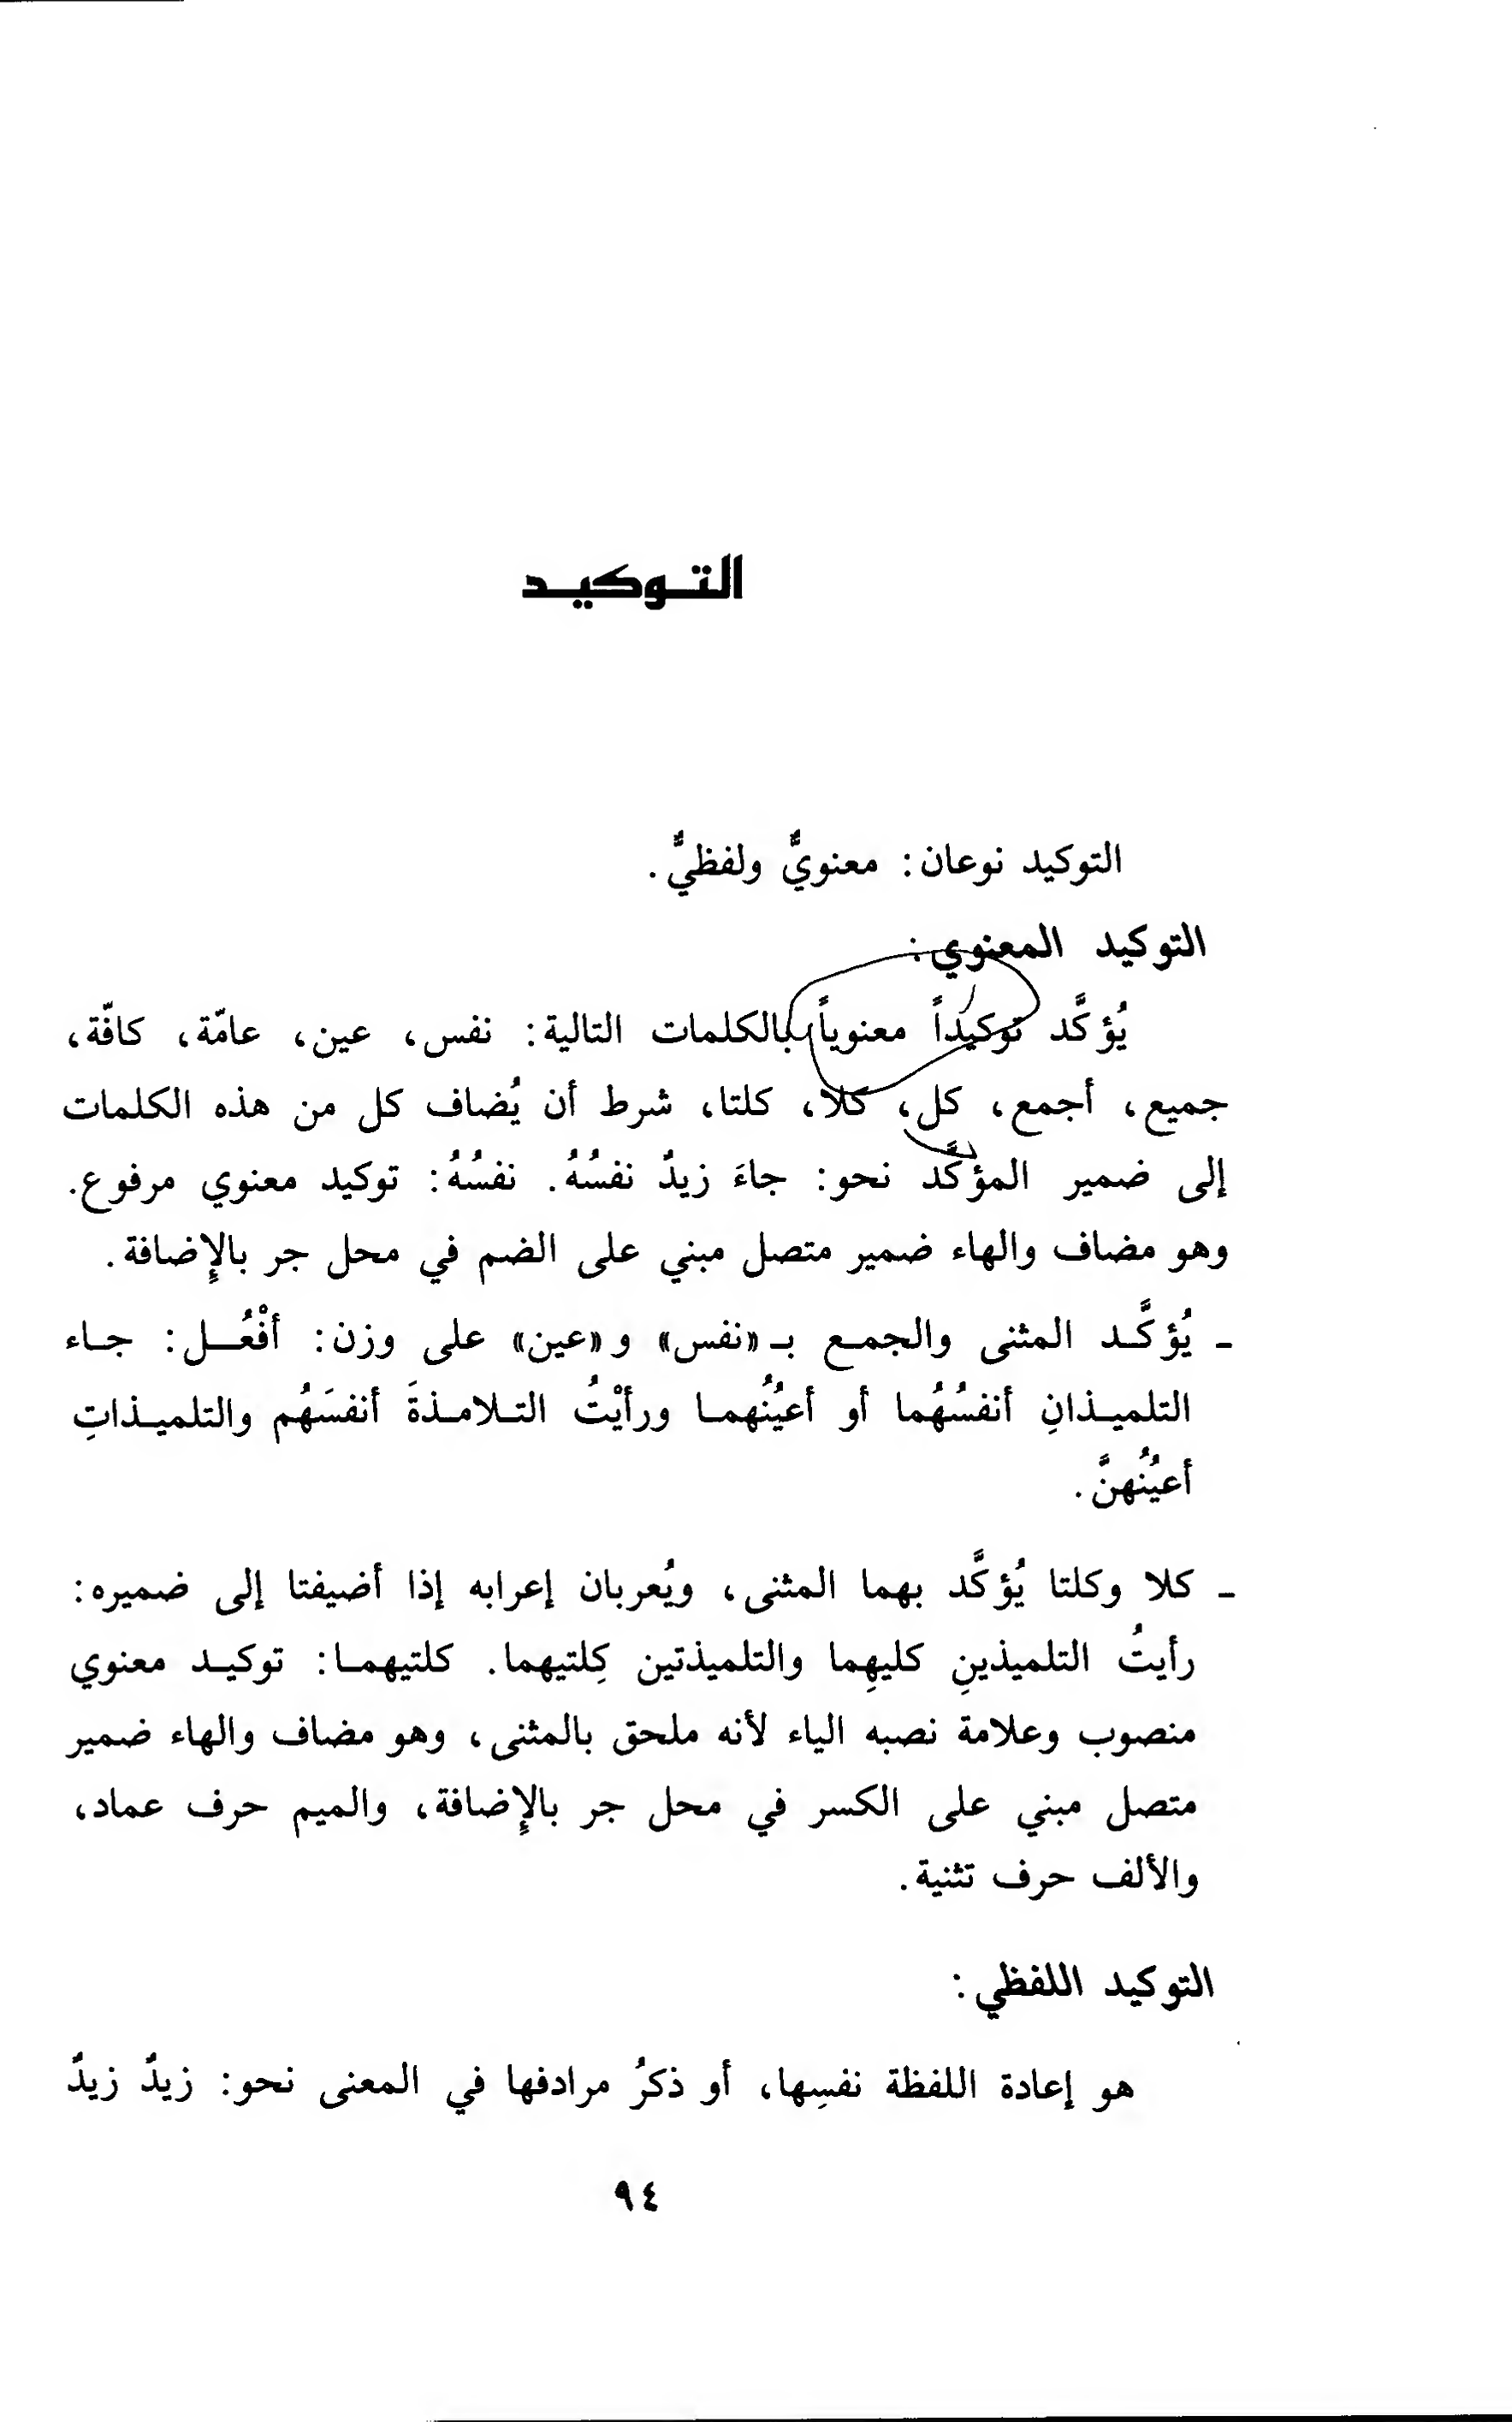 التوكيد
التوكيد نوعان: معنويٌّ ولفظيٌّ.
التوكيد المعنوي:
يُؤكَّد توكيداً معنوياً بالكلمات التالية: نفس، عين، عامّة، كافّة،
جميع، أجمع، كل، كلا، كلتا، شرط أن يُضاف كل من هذه الكلمات
إلى ضمير المؤكَّد نحو: جاءَ زيدٌ نفسُهُ. نفسُهُ: توكيد معنوي مرفوع.
وهو مضاف والهاء ضمير متصل مبني على الضم في محل جر بالإِضافة.
ـ يُؤكَّد المثنى والجمع بـ «نفس» و «عين» على وزن: أفْعُل: جاء
التلميذانِ أنفسُهُما أو أعيُنُهما ورأيْتُ التلامذةَ أنفسَهُم والتلميذاتِ
أعيُنُهنَّ.
ـ كلا وكلتا يُؤكَّد بهما المثنى، ويُعربان إعرابه إذا أضيفتا إلى ضميره:
رأيتُ التلميذينِ كليهِما والتلميذتين كِلتيهما. كلتيهما: توكيد معنوي
منصوب وعلامة نصبه الياء لأنه ملحق بالمثنى، وهو مضاف والهاء ضمير
متصل مبني على الكسر في محل جر بالإِضافة، والميم حرف عماد،
والألف حرف تثنية.
التوكيد اللفظي:
هو إعادة اللفظة نفسِها، أو ذكرُ مرادفها في المعنى نحو: زيدٌ زيدٌ
٩٤